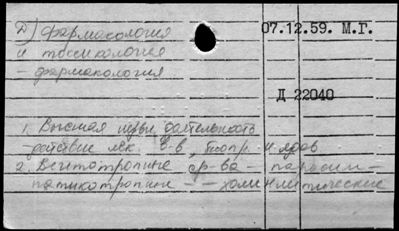 Д) фармакология
и токсикология
– фармакология
07.12.59. М.Г.
Д 22040
1. Высшая нервн. деятельность
– действие лек. в-в, и ядов
2. Вегетотропные ср-ва – парасим-
патикотропные – – холинлитические